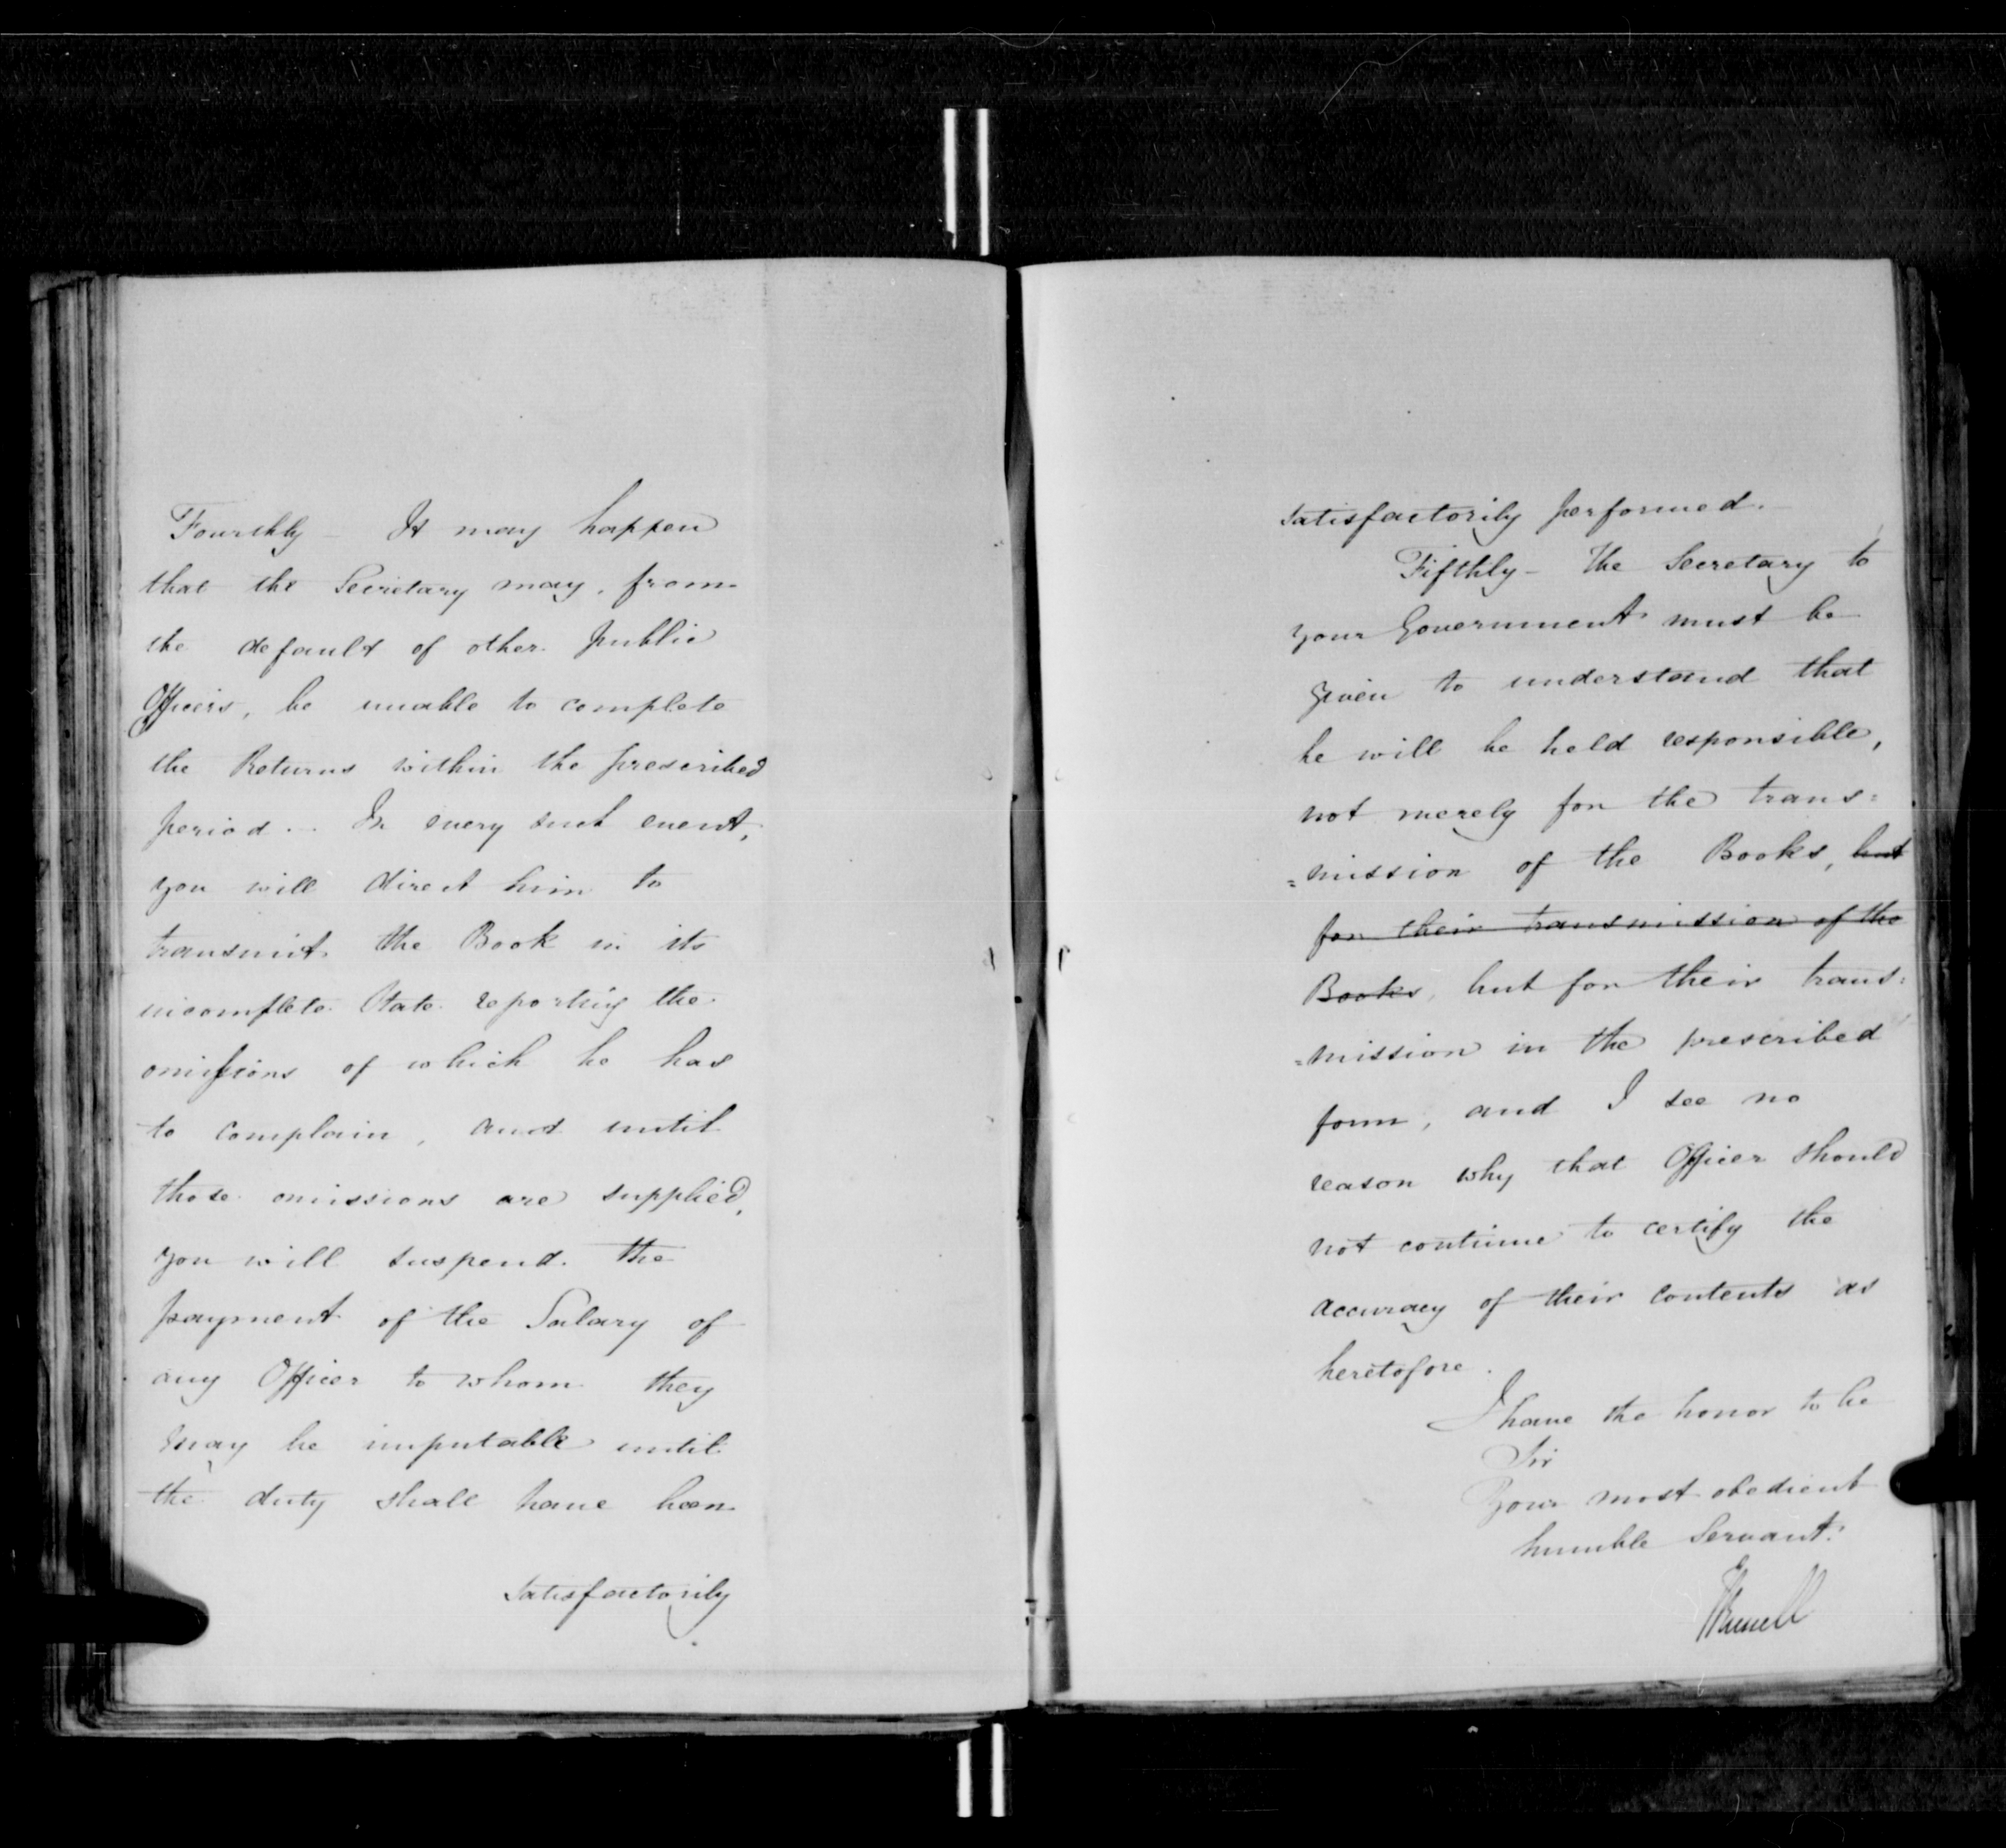 Fourthly – It may happen
that the Secretary may, from
the default of other public
Officers, be unable to complete
the Returns within the prescribed
period. – In every such event,
you will direct him to
transmit the Book in its
incomplete State reporting the
omissions of which he has
to complain, and until
those omissions are supplied,
you will suspend the
payment of the Salary of
any Officer to whom they
may be imputable until
the duty shall have been
satisfactorily
satisfactorily performed.
Fifthly – The Secretary to
your Government must be
given to understand that
he will be held responsible,
not merely for the trans=
=mission of the Books, but
for their transmission of the
Books, but for their trans=
=mission in the prescribed
form, and I see no
reason why that Officer should
not continue to certify the
accuracy of their contents as
heretofore.
I have the honor to be
Sir
Your most obedient
humble Servant.
JRussell